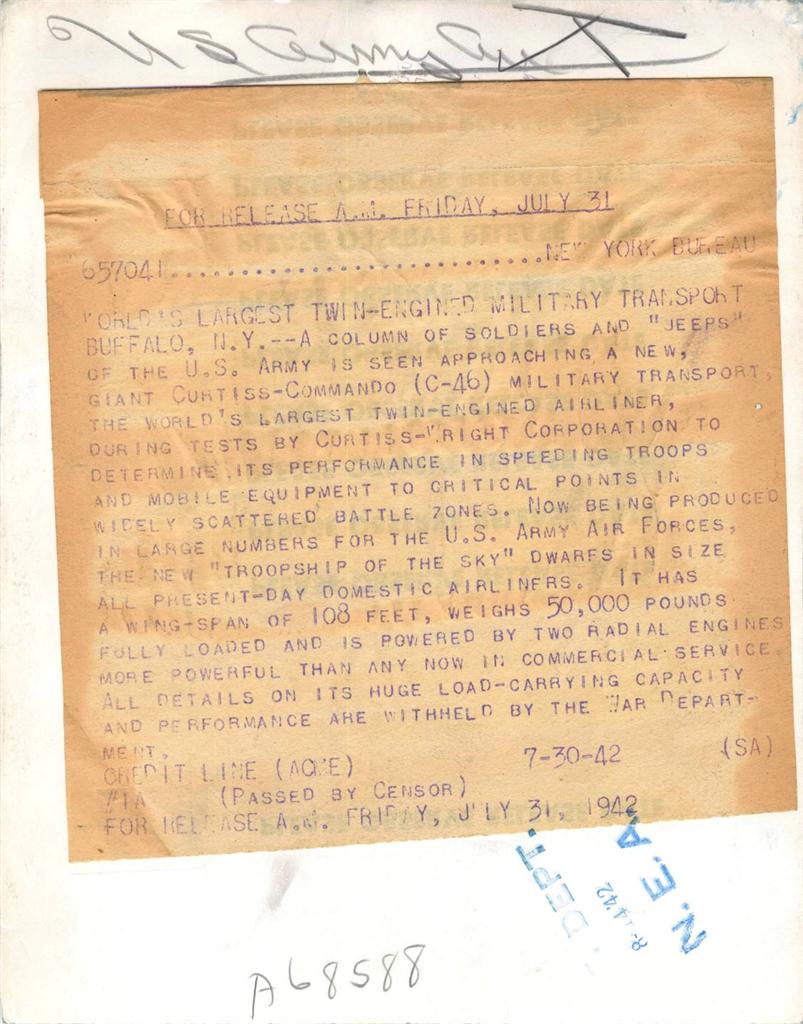 US Army Aust
FOR RELEASE A.M. FRIDAY, JULY 31
657041..............................NEW YORK BUREAU
WORLD'S LARGEST TWIN-ENGINED MILITARY TRANSPORT
BUFFALO, N.Y.--A COLUMN OF SOLDIERS AND "JEEPS"
OF THE U.S. ARMY IS SEEN APPROACHING A NEW,
GIANT CURTISS-COMMANDO (C-46) MILITARY TRANSPORT,
THE WORLD'S LARGEST TWIN-ENGINED AIRLINER,
DURING TESTS BY CURTISS-WRIGHT CORPORATION TO
DETERMINE ITS PERFORMANCE IN SPEEDING TROOPS
AND MOBILE EQUIPMENT TO CRITICAL POINTS IN
WIDELY SCATTERED BATTLE ZONES. NOW BEING PRODUCED
IN LARGE NUMBERS FOR THE U.S. ARMY AIR FORCES,
THE NEW "TROOPSHIP OF THE SKY" DWARFS IN SIZE
ALL PRESENT-DAY DOMESTIC AIRLINERS. IT HAS
A WING-SPAN OF 108 FEET, WEIGHS 50,000 POUNDS
FULLY LOADED AND IS POWERED BY TWO RADIAL ENGINES
MORE POWERFUL THAN ANY NOW IN COMMERCIAL SERVICE.
ALL DETAILS ON ITS HUGE LOAD-CARRYING CAPACITY
AND PERFORMANCE ARE WITHHELD BY THE WAR DEPART-
MENT.
CREDIT LINE (ACME) 7-30-42 (SA)
#1A (PASSED BY CENSOR)
FOR RELEASE A.M. FRIDAY, JULY 31, 1942
DEPT.
8-14 42
N.E.A.
A68588